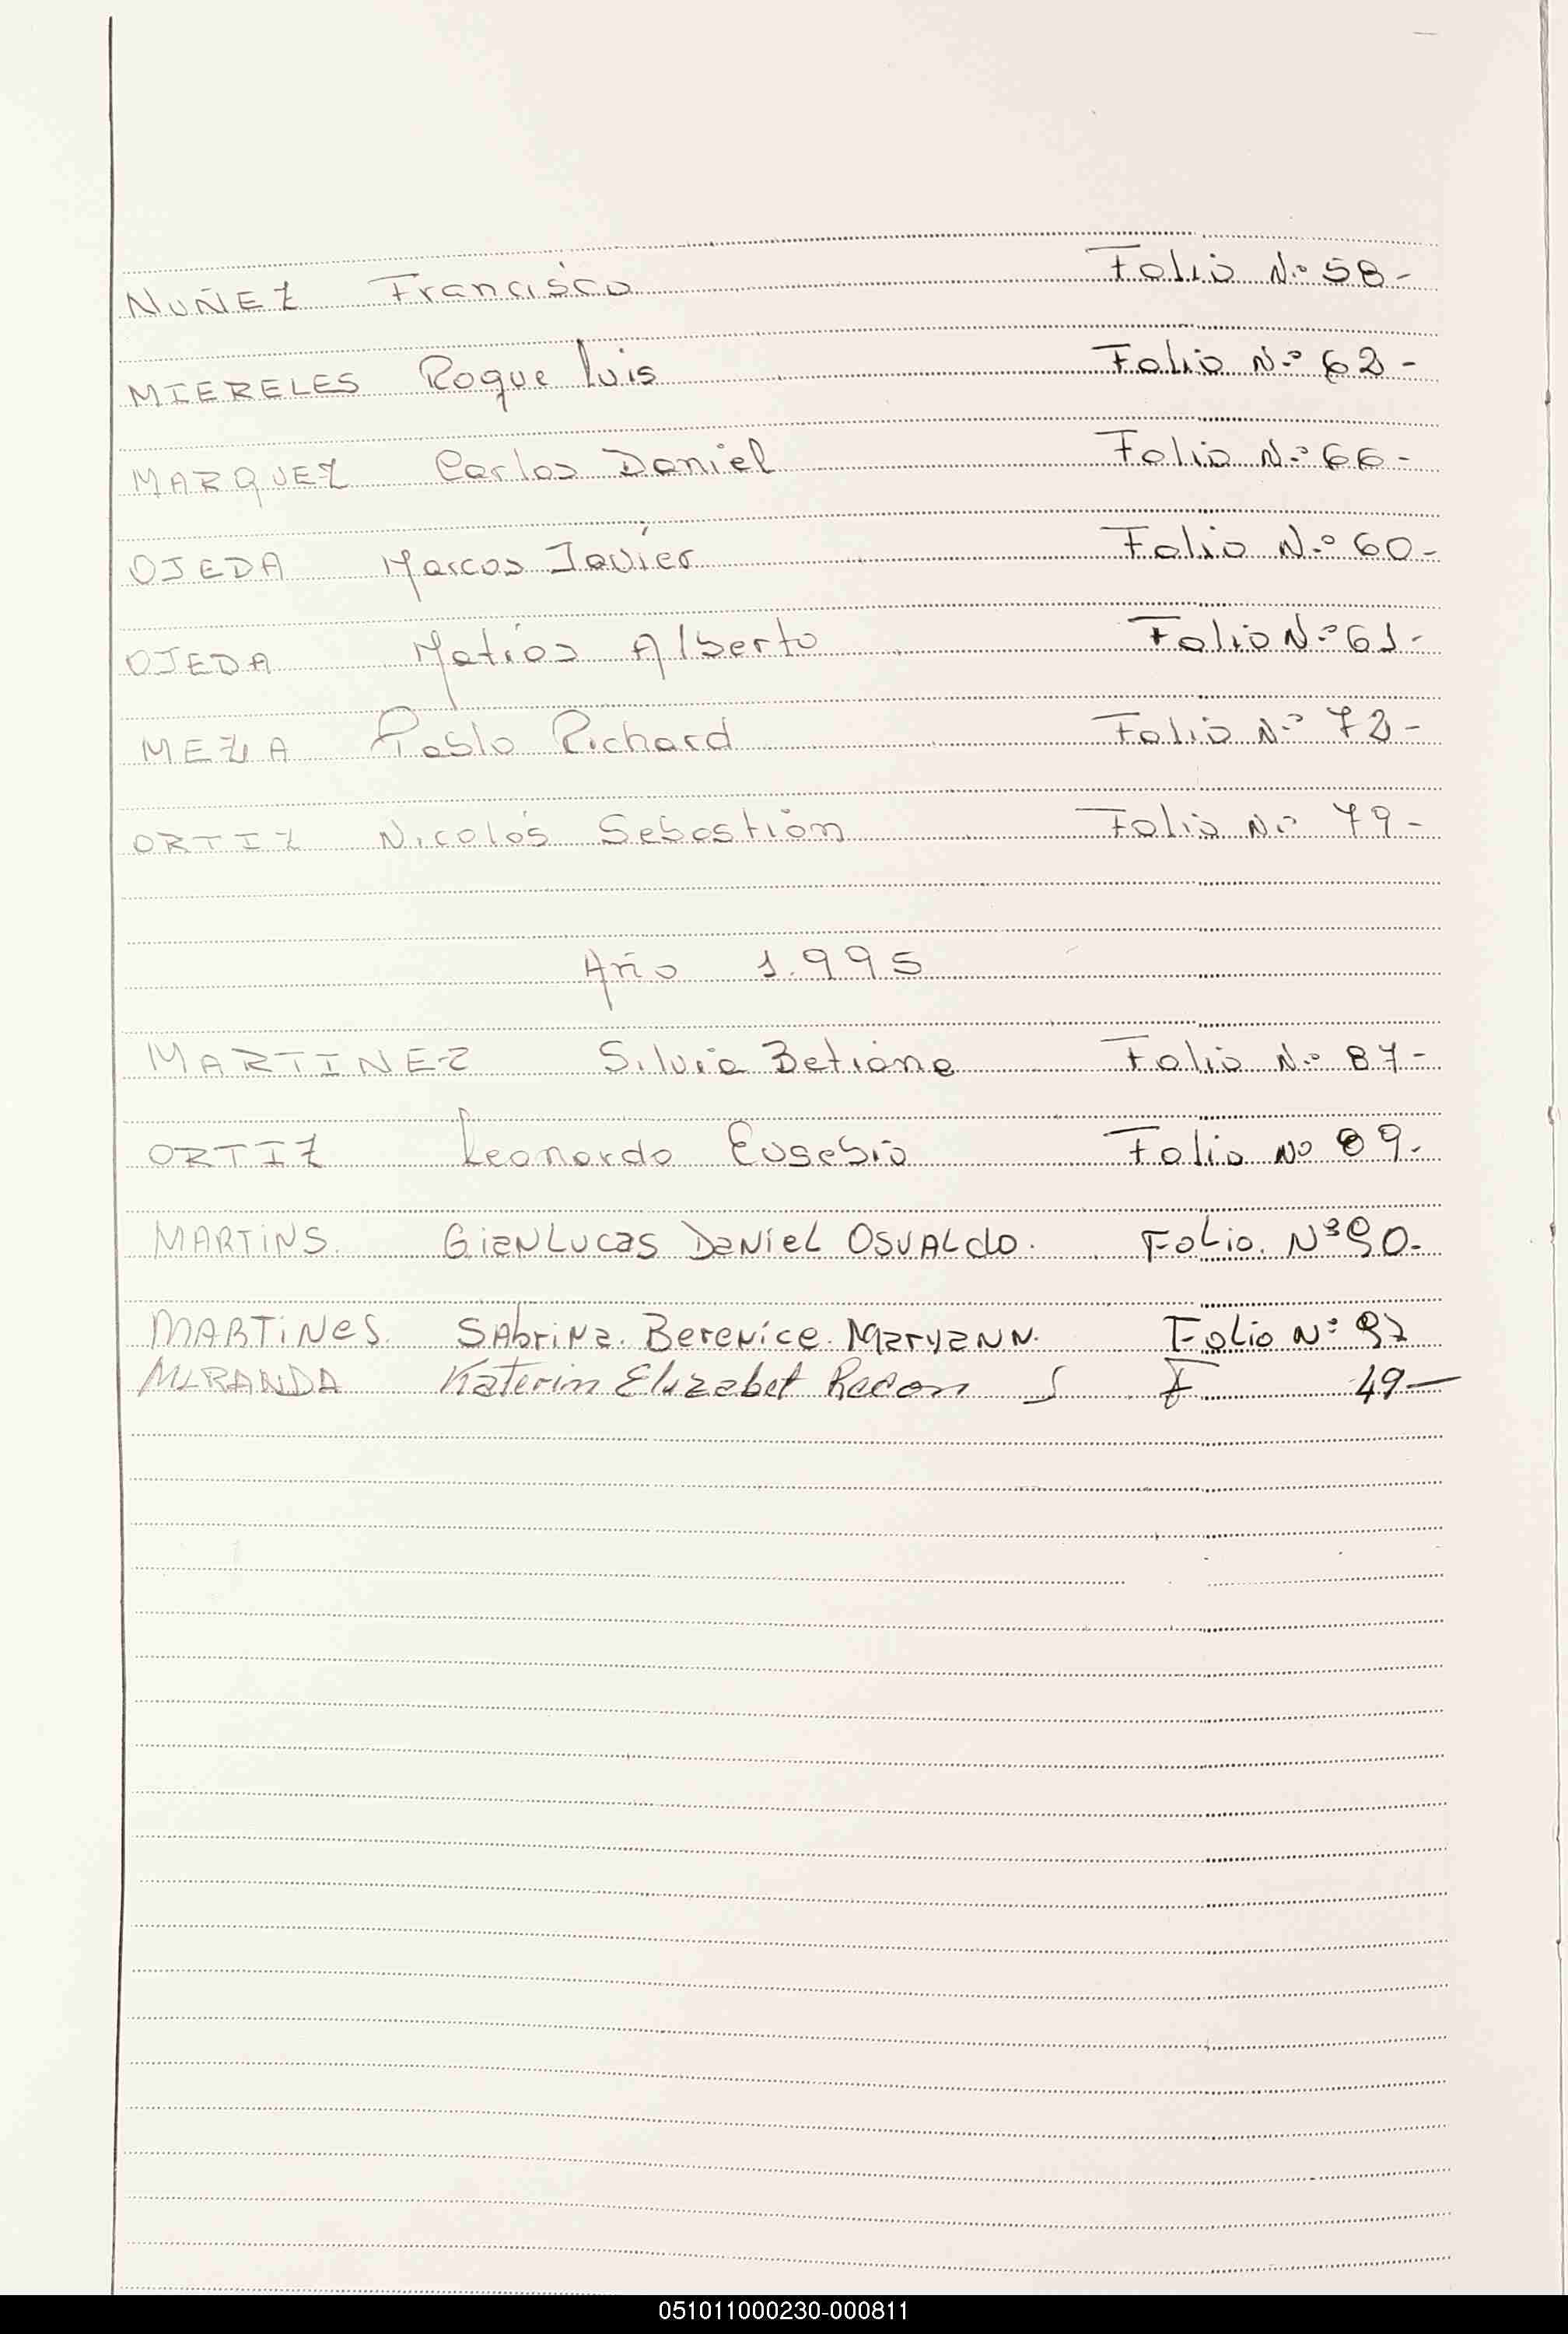 NUÑEZ Francisco Folio N.º 58-
MIERELES Roque Luis Folio N.º 62-
MARQUEZ Carlos Daniel Folio N.º 66-
OJEDA Marcos Javier Folio N.º 60-
OJEDA Matías Alberto Folio N.º 61-
MEZA Pablo Richard Folio N.º 72-
ORTIZ Nicolás Sebastián Folio N.º 79-
Año 1.995
MARTINEZ Silvia Betiana Folio N.º 87-
ORTIZ Leonardo Eusebio Folio Nº 89.
MARTiNS. GiaNLucas DaNieL OSVALdo. FoLio. Nº 90.
MARTiNeS. SAbriNa. BereNice. MaryaNN. Folio Nº 97
MIRANDA Katerin Elizabet F 49-
051011000230-000811